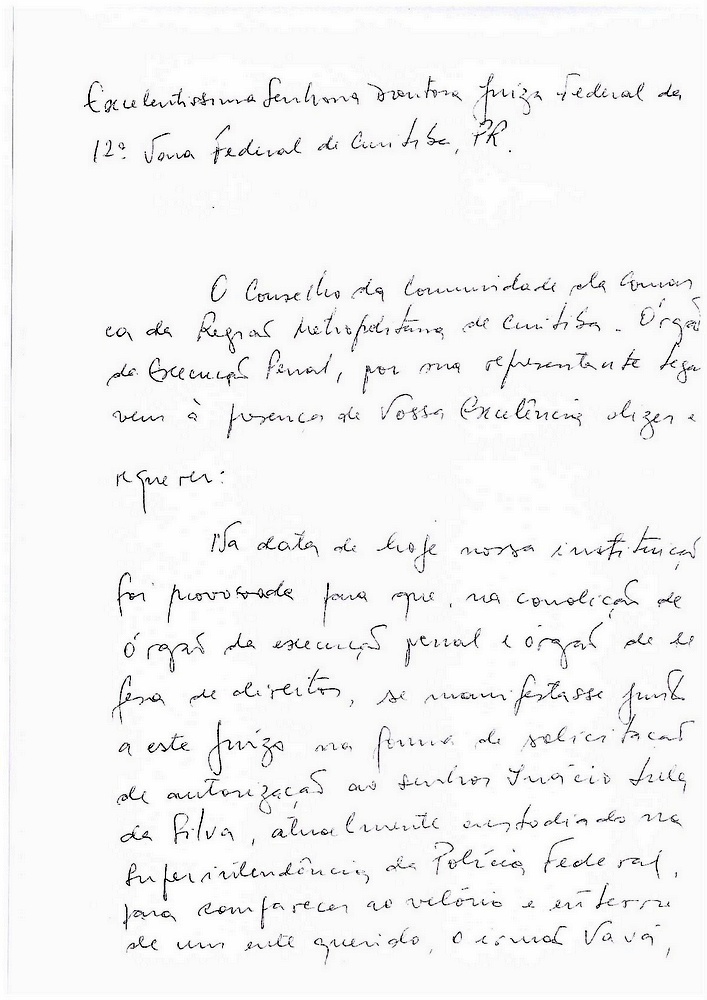 Excelentíssima Senhora Doutora Juíza Federal da
12ª Vara Federal de Curitiba, PR.
O Conselho da Comunidade da Comar
ca da Região Metropolitana de Curitiba - Órgão
da Execução Penal, por sua representante lega
vem à presença de Vossa Excelência dizer e
requerer:
Na data de hoje nossa instituição
foi provocada para que, na condição de
órgão da execução penal e órgão de de
fesa de direitos, se manifestasse junto
a este Juízo na forma de solicitação
de autorização ao senhor Inácio Lula
da Silva, atualmente custodiado na
Superintendência da Polícia Federal,
para comparecer ao velório e enterro
de um ente querido, o irmão Vavá,